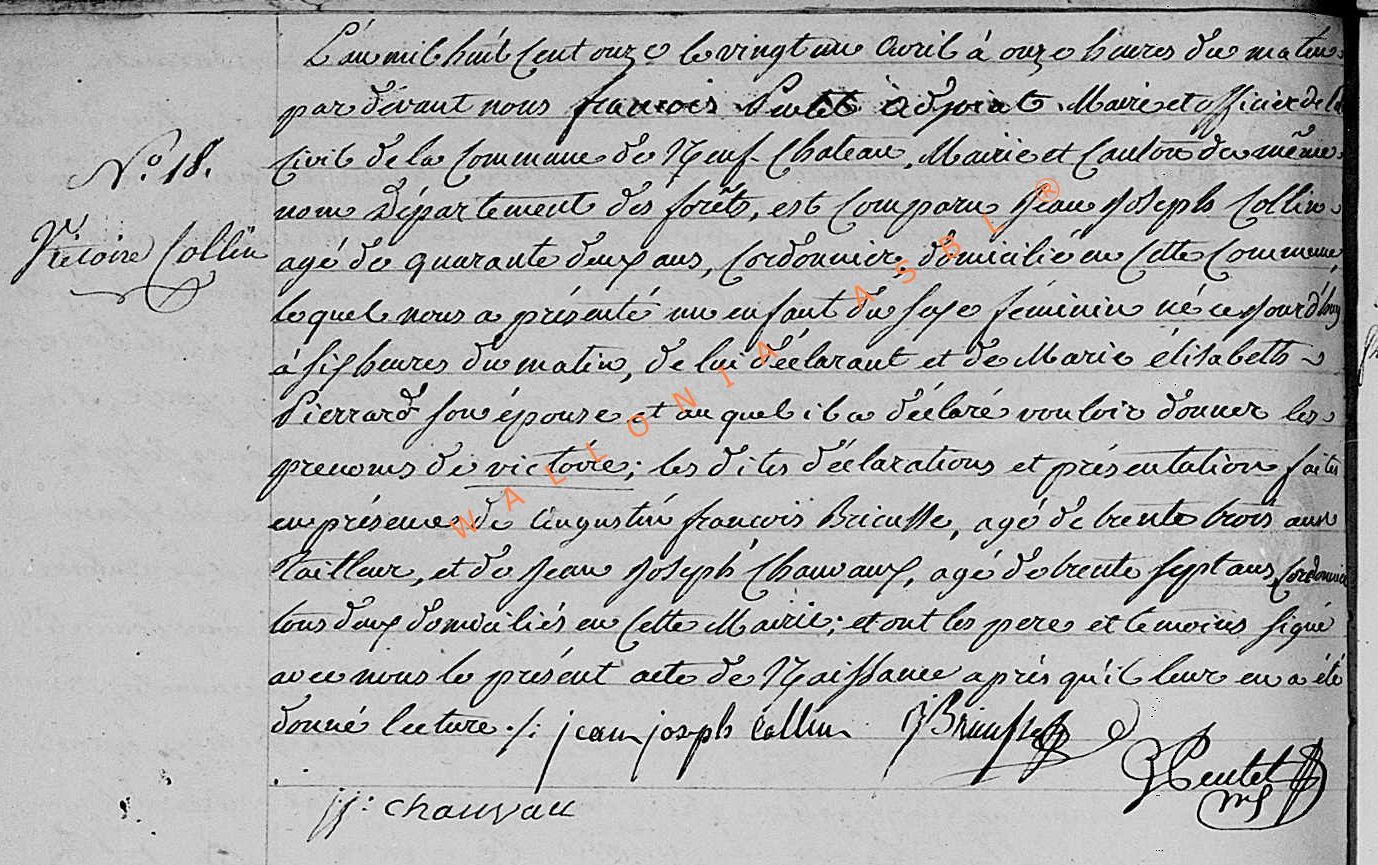 L'an mil huit Cent onze le vingt un Avril à onze heures du matin
par devant nous françois Pentet adjoint Maire et officier de l'
Civil de la Commune de Neuf-Chateau, Mairie et Canton du même
N.o 18.
nom Département des forêts, est Comparu Jean Joseph Collin
Victoire Collin
agé de quarante deux ans, Cordonnier domicilié en Cette Commune,
lequel nous a présenté un enfant du sexe féminin né ce jourd'huy
à six heures du matin, de lui déclarant et de Marie élisabeth
Pierrard son épouse et au quel il a déclaré vouloir donner les
prenoms de victoire; les dites déclarations et présentation faites
en présence de Augustin françois Bricusse, agé de trente trois ans
Tailleur, et de Jean Joseph Chauvaux, agé de trente sept ans, Cordonnier
tous deux domiciliés en Cette Mairie; et ont les pere et temoins signé
avec nous le présent acte de Naissance après qu'il leur en a été
donné lecture ./: jean joseph Collin Bricusse
Pentet
jj: chauvau
WALLONIA ASBL ®